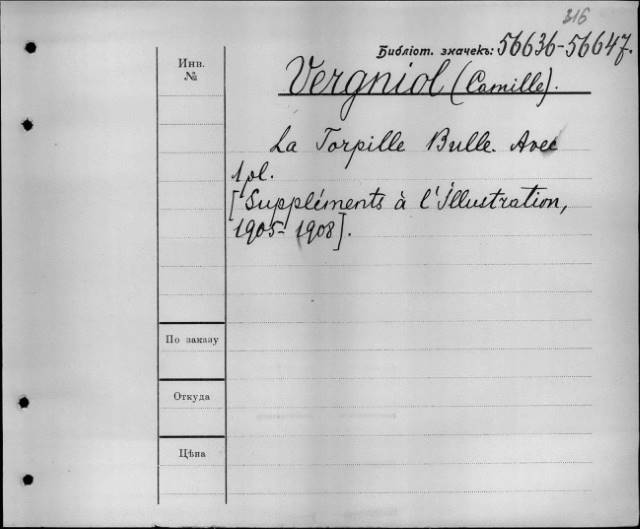 316
Библіот. значекъ: 56636-56647.
Инв.
№
Vergniol (Camille).
La Torpille Bulle. Avec
1 pl.
[Suppléments à l'Illustration,
1905-1908].
По заказу
Откуда
Цѣна